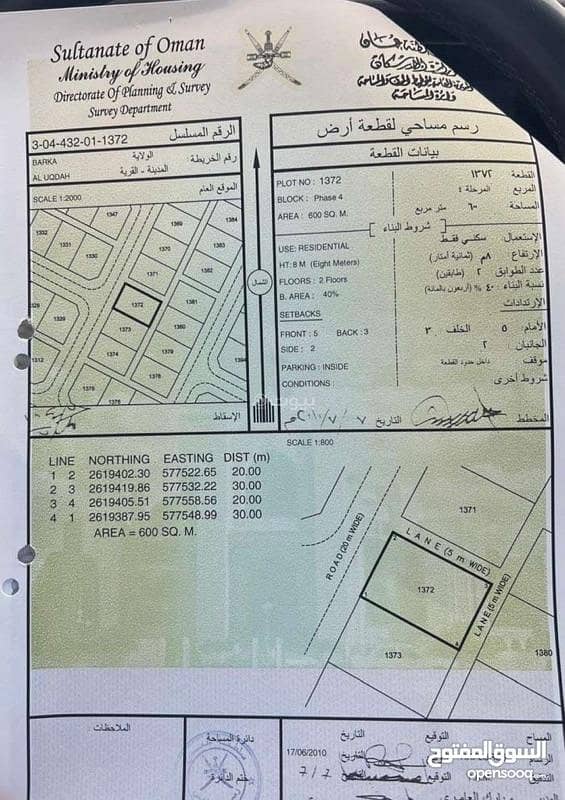 Sultanate of Oman
Ministry of Housing
Directorate of Planning & Survey
Survey Department
دائرة المساحة
3-04-432-01-1372
الرقم المسلسل
BARKA
الولاية
رقم الخريطة
AL UQDAH
المدينة - القرية
SCALE 1:2000
الموقع العام
1347
1384
1369
1332
1331
1330
1370
1371
1372
1381
1373
1329
1312
1374
1375
1376
الشمال
الإسقاط
رسم مساحي لقطعة أرض
بيانات القطعة
PLOT NO : 1372
القطعة ١٣٧٢
BLOCK : Phase 4
المربع المرحلة ٤
AREA : 600 SQ. M.
المساحة ٦٠٠ متر مربع
شروط البناء
USE: RESIDENTIAL
الإستعمال سكني فقط
HT: 8 M (Eight Meters)
الإرتفاع ٨م (ثمانية أمتار)
FLOORS : 2 Floors
عدد الطوابق ٢ (طابقين)
B. AREA : 40%
نسبة البناء ٤٠ % (أربعون بالمائة)
SETBACKS
الإرتدادات
FRONT : 5 BACK : 3
الأمام ٥ الخلف ٣
SIDE : 2
الجانبان ٢
PARKING : INSIDE
موقف داخل حدود القطعة
CONDITIONS :
شروط أخرى
المخطط
التاريخ
SCALE 1:800
LINE NORTHING EASTING DIST (m)
1 2 2619402.30 577522.65 20.00
2 3 2619419.86 577532.22 30.00
3 4 2619405.51 577558.56 20.00
4 1 2619387.95 577548.99 30.00
AREA = 600 SQ. M.
ROAD (20 m WIDE)
1371
LANE (5 m WIDE)
1372
LANE (5 m WIDE)
1373
1380
الملاحظات
دائرة المساحة
ختم الدائرة
التاريخ التوقيع المساح
17/06/2010 التاريخ التوقيع الرسام
7/7 التوقيع التدقيق
السوق المفتوح
opensooq.com